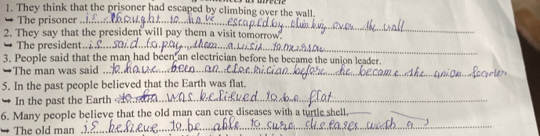 1. They think that the prisoner had escaped by climbing over the wall.
➥ The prisoner is thought to have escaped by climbing over the wall
2. They say that the president will pay them a visit tomorrow.
➥ The president is said to pay them a visit tomorrow
3. People said that the man had been an electrician before he became the union leader.
➥ The man was said to have been an electrician before he became the union leader
5. In the past people believed that the Earth was flat.
➥ In the past the Earth was believed to be flat
6. Many people believe that the old man can cure diseases with a turtle shell.
➥ The old man is believe to be able to cure diseases with a